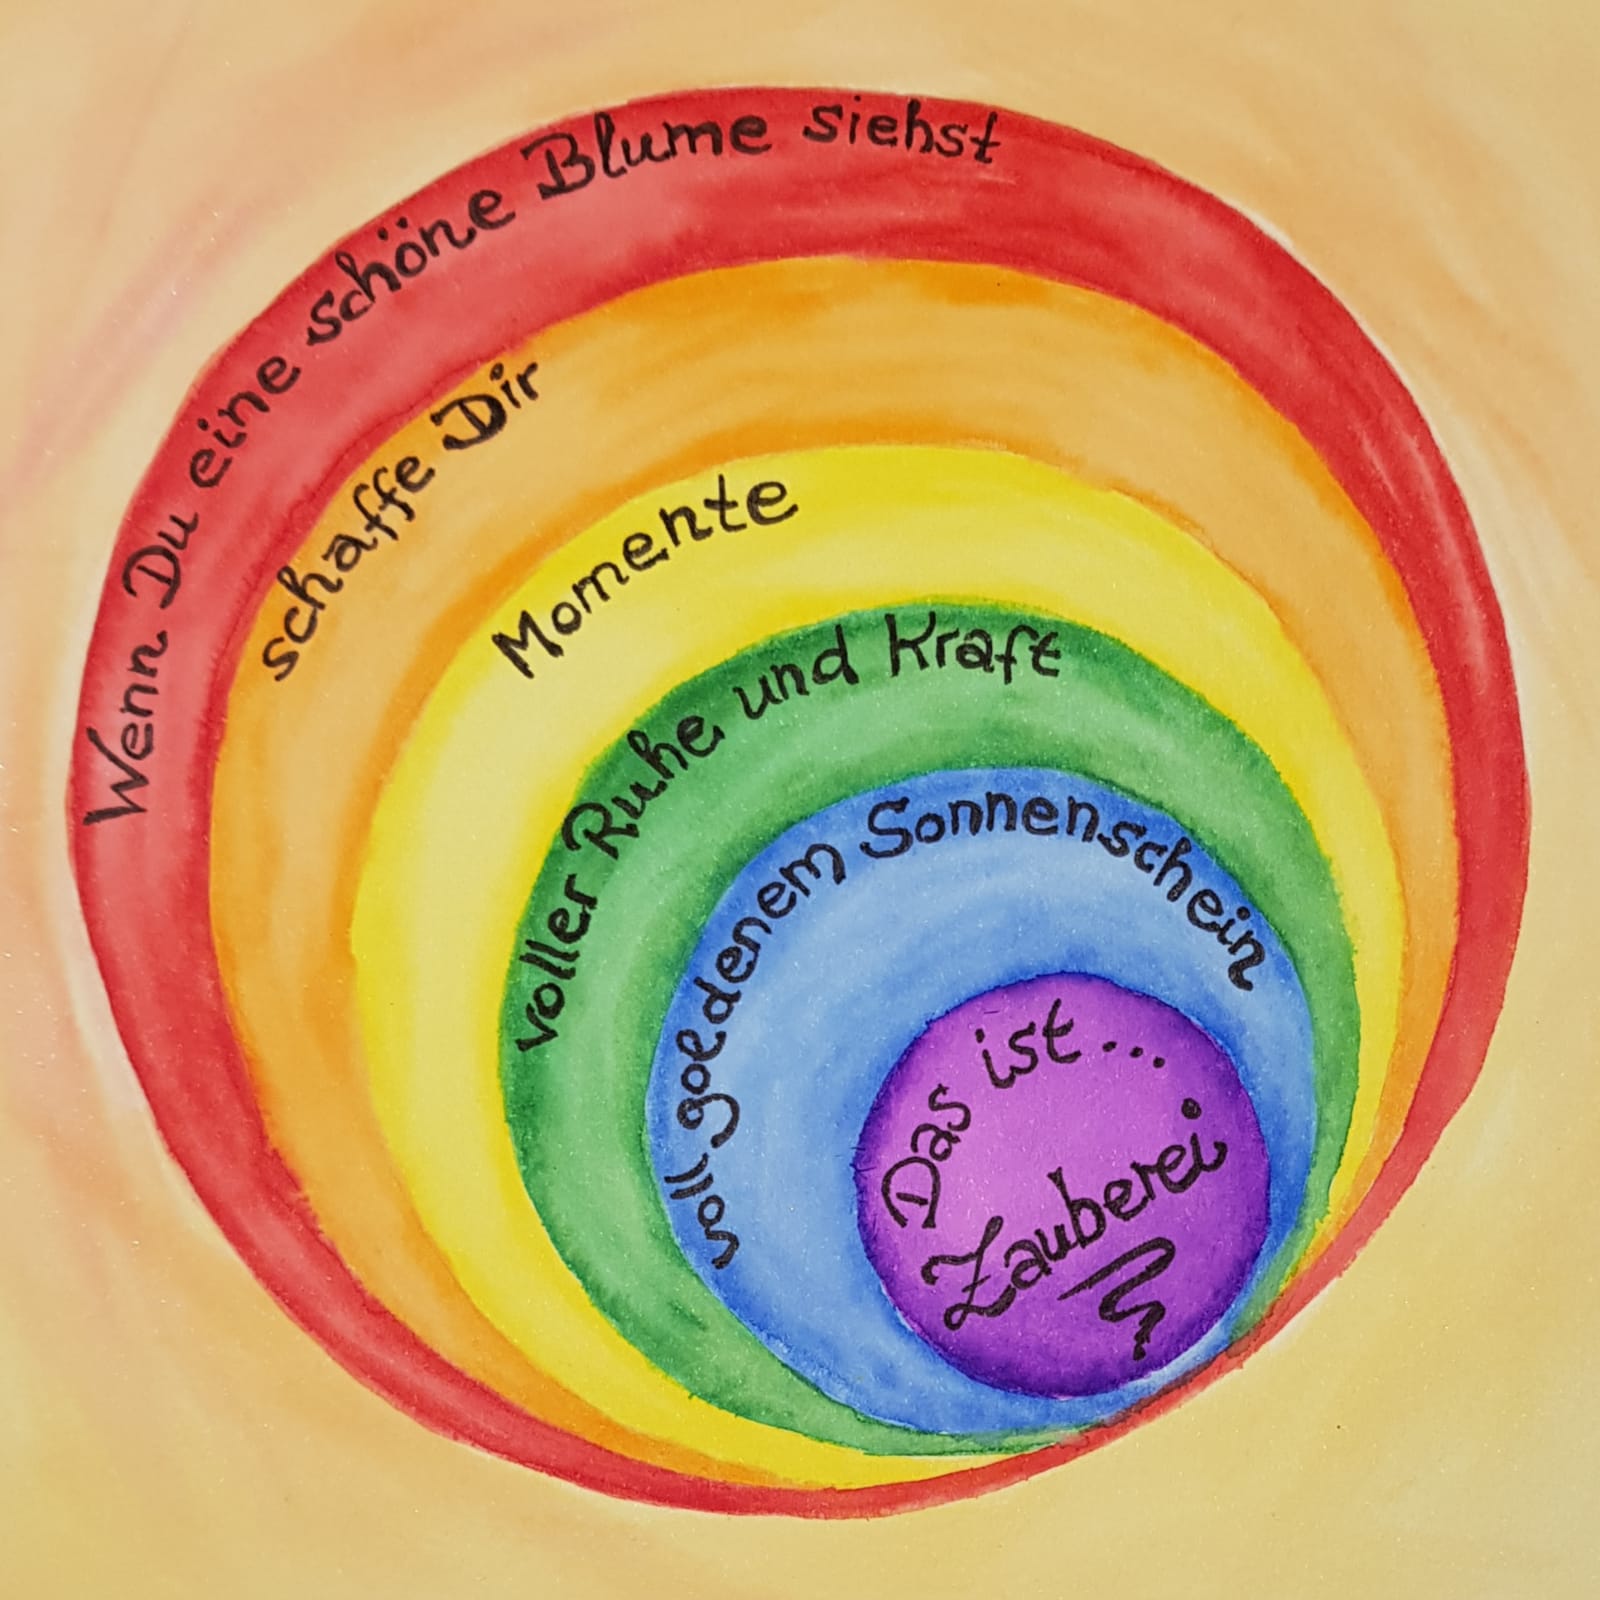 Wenn Du eine schöne Blume siehst
schaffe Dir
Momente
voller Ruhe und Kraft
voll goldenem Sonnenschein
Das ist...
Zauberei